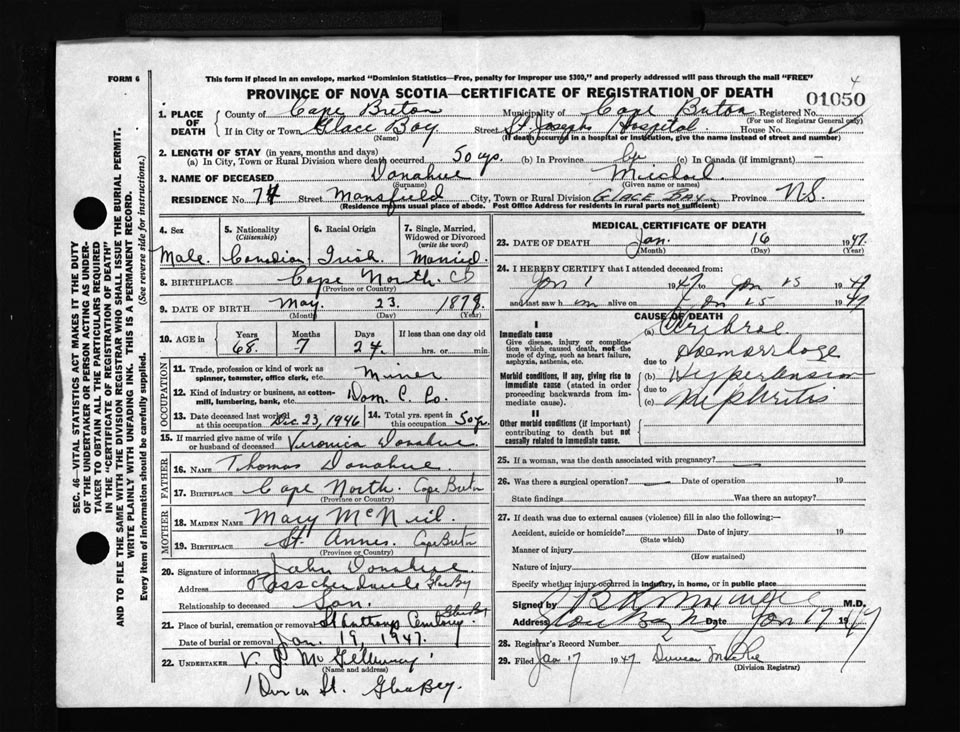 FORM 6
This form if placed in an envelope, marked "Dominion Statistics—Free, penalty for improper use $300," and properly addressed will pass through the mail "FREE"
4
PROVINCE OF NOVA SCOTIA—CERTIFICATE OF REGISTRATION OF DEATH
01050
1. PLACE OF DEATH
County of Cape Breton Municipality of Cape Breton Registered No.
(For use of Registrar General only)
If in City or Town Glace Bay Street St. Joseph Hospital House No.
(Name) (If death occurred in a hospital or institution, give the name instead of street and number)
2. LENGTH OF STAY (in years, months and days)
(a) In City, Town or Rural Division where death occurred 50 yrs. (b) In Province (c) In Canada (if immigrant) —
3. NAME OF DECEASED Donahue Michael
(Surname) (Given name or names)
RESIDENCE No. 74 Street Mansfield City, Town or Rural Division GLACE BAY Province N.S.
(Residence means usual place of abode. Post Office Address for residents in rural parts not sufficient)
SEC. 46—VITAL STATISTICS ACT MAKES IT THE DUTY
OF THE UNDERTAKER OR PERSON ACTING AS UNDER-
TAKER TO OBTAIN ALL THE PARTICULARS REQUIRED
IN THE "CERTIFICATE OF REGISTRATION OF DEATH"
AND TO FILE THE SAME WITH THE DIVISION REGISTRAR WHO SHALL ISSUE THE BURIAL PERMIT.
WRITE PLAINLY WITH UNFADING INK. THIS IS A PERMANENT RECORD.
Every item of information should be carefully supplied. (See reverse side for instructions.)
4. Sex 5. Nationality (Citizenship) 6. Racial Origin 7. Single, Married, Widowed or Divorced (write the word)
Male. Canadian Irish Married
8. BIRTHPLACE Cape North. CB
(Province or Country)
9. DATE OF BIRTH May 23. 1878.
(Month) (Day) (Year)
10. AGE in Years Months Days If less than one day old
68. 7 24. hrs. or min.
OCCUPATION
11. Trade, profession or kind of work as spinner, teamster, office clerk, etc. Miner
12. Kind of industry or business, as cotton-mill, lumbering, bank, etc. Dom. C. Co.
13. Date deceased last worked at this occupation Dec. 23, 1946 14. Total yrs. spent in this occupation 50 yrs.
15. If married give name of wife or husband of deceased Veronica Donahue
FATHER
16. NAME Thomas Donahue.
17. BIRTHPLACE Cape North. Cape Breton
(Province or Country)
MOTHER
18. MAIDEN NAME Mary McNeil.
19. BIRTHPLACE St. Annes. Cape Breton
(Province or Country)
20. Signature of informant John Donahue
Address Glace Bay
Relationship to deceased Son.
21. Place of burial, cremation or removal St Anthony Cemetery Glace Bay
Date of burial or removal Jan 19, 1947.
22. UNDERTAKER V. J. McGillivray
(Name and address)
St. Glace Bay.
MEDICAL CERTIFICATE OF DEATH
23. DATE OF DEATH Jan. 16 1947.
(Month) (Day) (Year)
24. I HEREBY CERTIFY that I attended deceased from:
Jan 1 1947 to Jan 15 1947
and last saw him alive on Jan 15 1947
CAUSE OF DEATH
I
Immediate cause (a) Cerebral
Give disease, injury or complication which caused death, not the mode of dying, such as heart failure, asphyxia, asthenia, etc. Haemorrhage
due to
Morbid conditions, if any, giving rise to immediate cause (stated in order proceeding backwards from immediate cause). (b) Hypertension
due to
(c) Nephritis
II
Other morbid conditions (if important) contributing to death but not causally related to immediate cause.
25. If a woman, was the death associated with pregnancy? —
26. Was there a surgical operation? — Date of operation 19
State findings Was there an autopsy?
27. If death was due to external causes (violence) fill in also the following:—
Accident, suicide or homicide? Date of injury 19
(State which)
Manner of injury
(How sustained)
Nature of injury
Specify whether injury occurred in industry, in home, or in public place
Signed by M.D.
Address Glace Bay Date Jan 17 1947
28. Registrar's Record Number
29. Filed Jan 17 1947 Duncan
(Division Registrar)